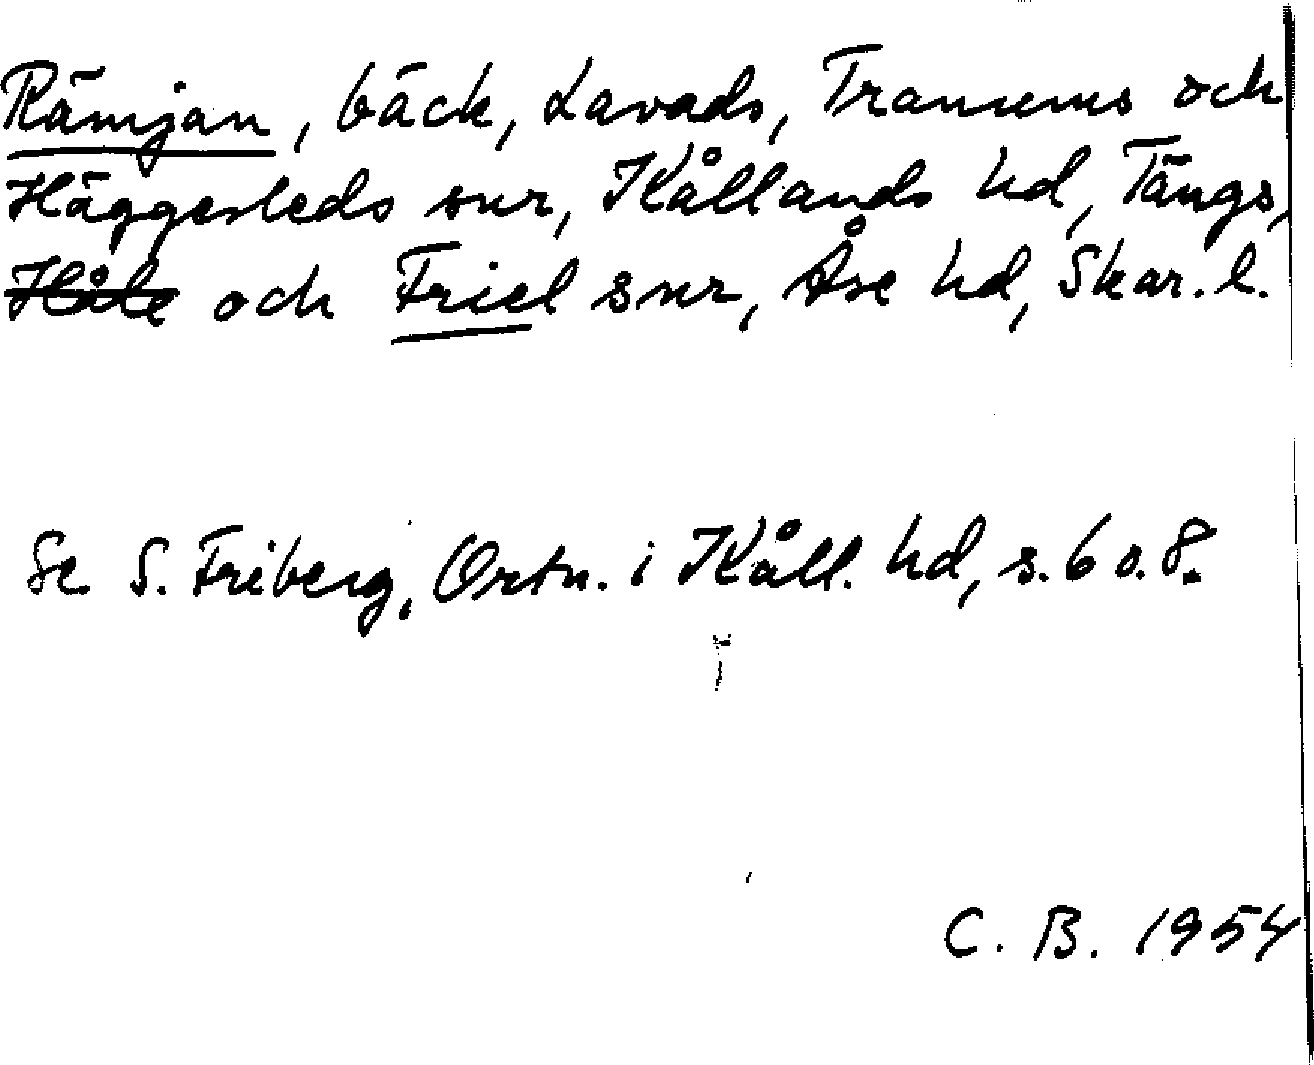 Rämjan, bäck, Lavads, Tranums och
Häggesleds snr, Kållands hd, Tängs,
Håle och Friel snr, Åse hd, Skar. l.
Se S. Friberg, Ortn. i Kåll. hd, s. 6 o. 8.
C. B. 1954